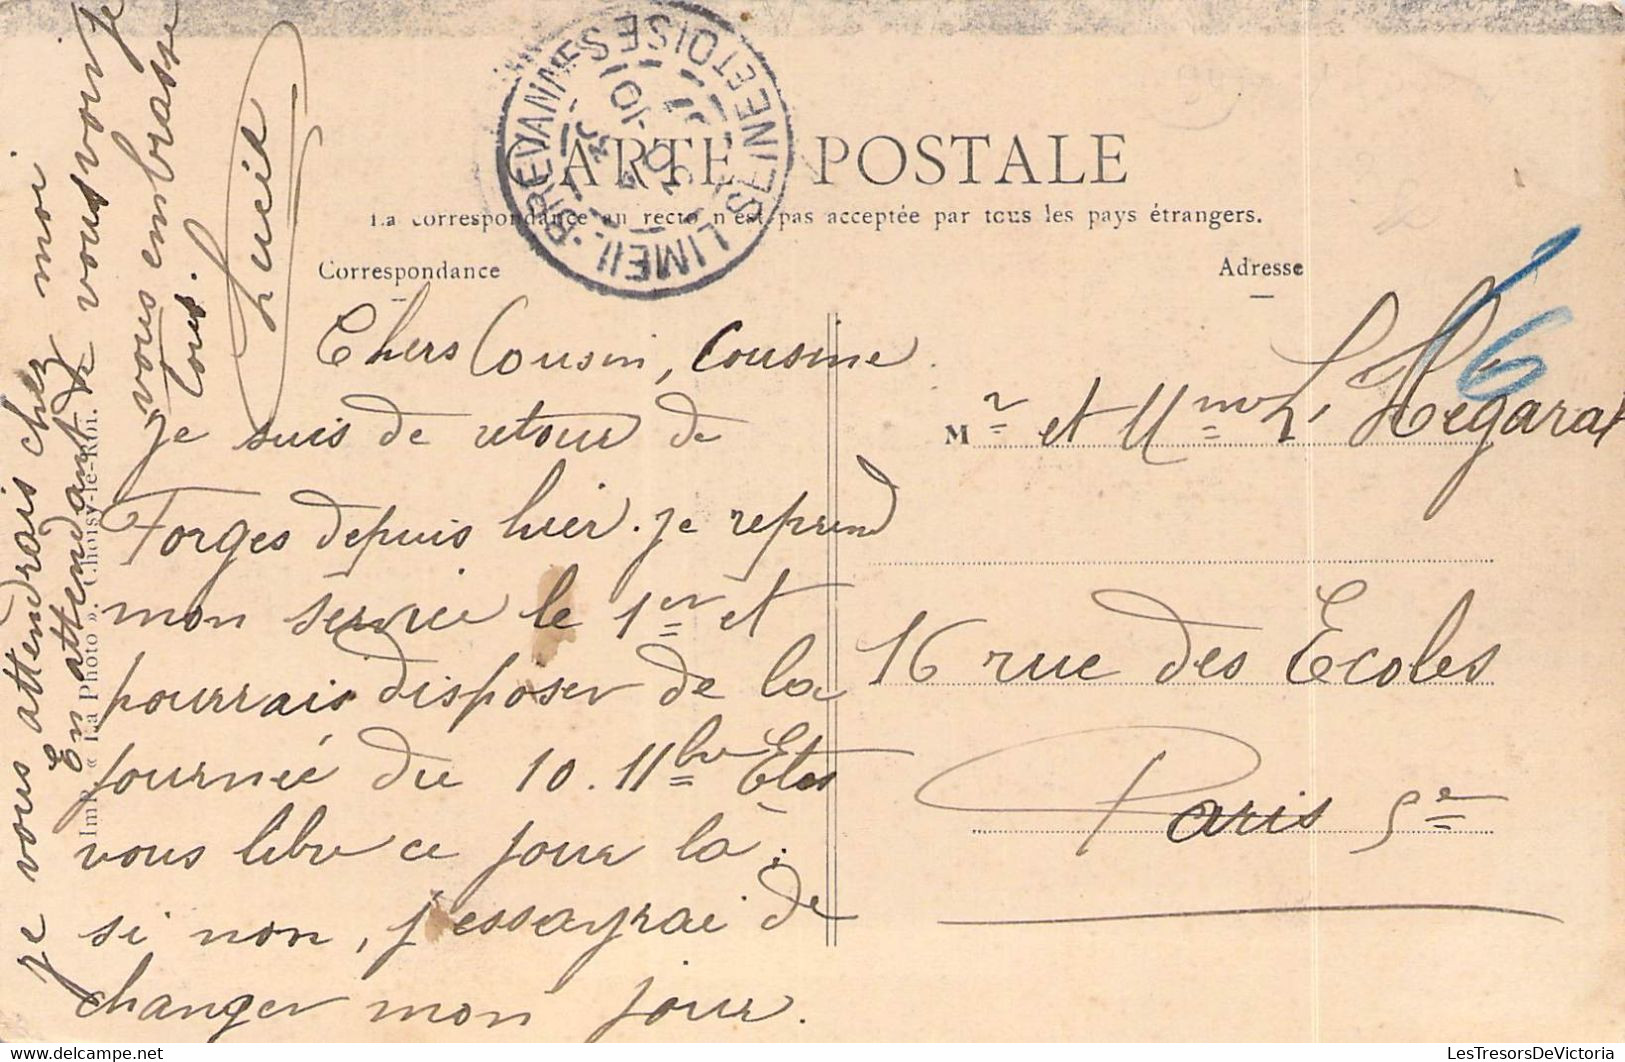 CARTE POSTALE
La correspondance au recto n'est pas acceptée par tous les pays étrangers.
Correspondance
Adresse
LIMEIL-BREVANNES
SEINE ET OISE
Chers Cousin, Cousine
je suis de retour de
Forges depuis hier. je reprend
mon service le 1er et
pourrais disposer de la
journée du 10. 11bre Etes
vous libre ce jour là ;
si non, j'essayrai de
changer mon jour.
je vous attendrais chez moi
En attendant de vous voir je
vous embrasse
tous.
Lucie
Imp. « La Photo ». Choisy-le-Roi.
Mr et Mme L' Hegarat
16 rue des Ecoles
Paris 5e
16
LesTresorsDeVictoria